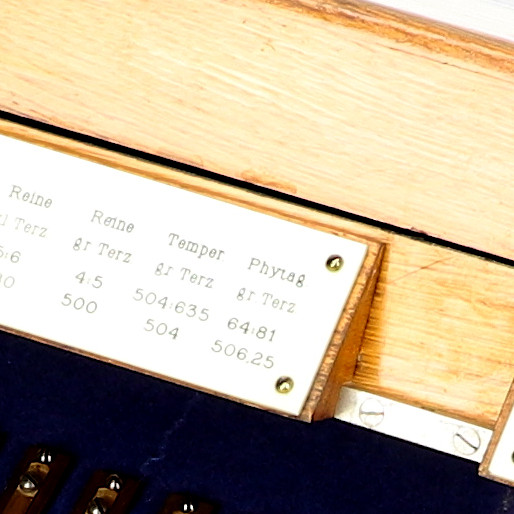 Reine Reine Temper Phytag
Terz gr Terz gr Terz gr Terz
:6 4:5 504:635 64:81
0 500 504 506,25